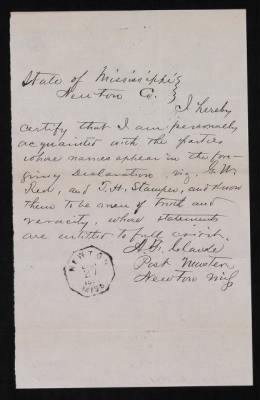 State of Mississippi }
Newton Co. }
I hereby
certify that I am personally
acquainted with the parties
whose names appear in the fore-
going Declaration, viz. G. W.
and T. H. Stamper, and know
them to be men of truth and
veracity, whose statements
are entitled to full credit.
Post Master
Newton Miss
NEWTON
MISS